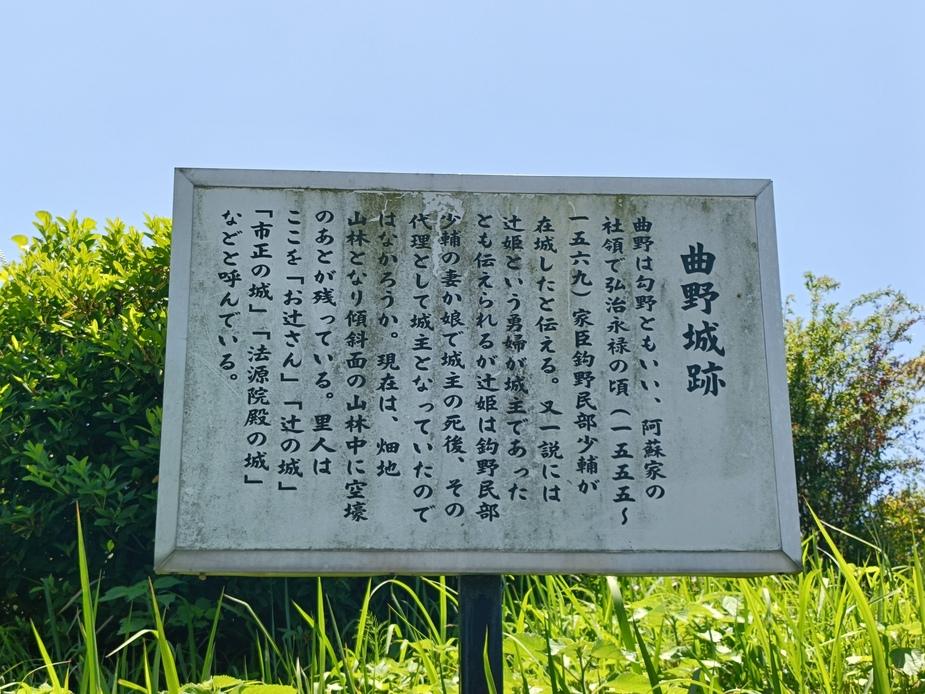 曲野城跡
曲野は勾野ともいい、阿蘇家の
社領で弘治永禄の頃（一五五五～
一五六九）家臣鈎野民部少輔が
在城したと伝える。又一説には
辻姫という勇婦が城主であった
とも伝えられるが辻姫は鈎野民部
少輔の妻か娘で城主の死後、その
代理として城主となっていたので
はなかろうか。現在は、畑地
山林となり傾斜面の山林中に空壕
のあとが残っている。里人は
ここを「お辻さん」「辻の城」
「市正の城」「法源院殿の城」
などと呼んでいる。